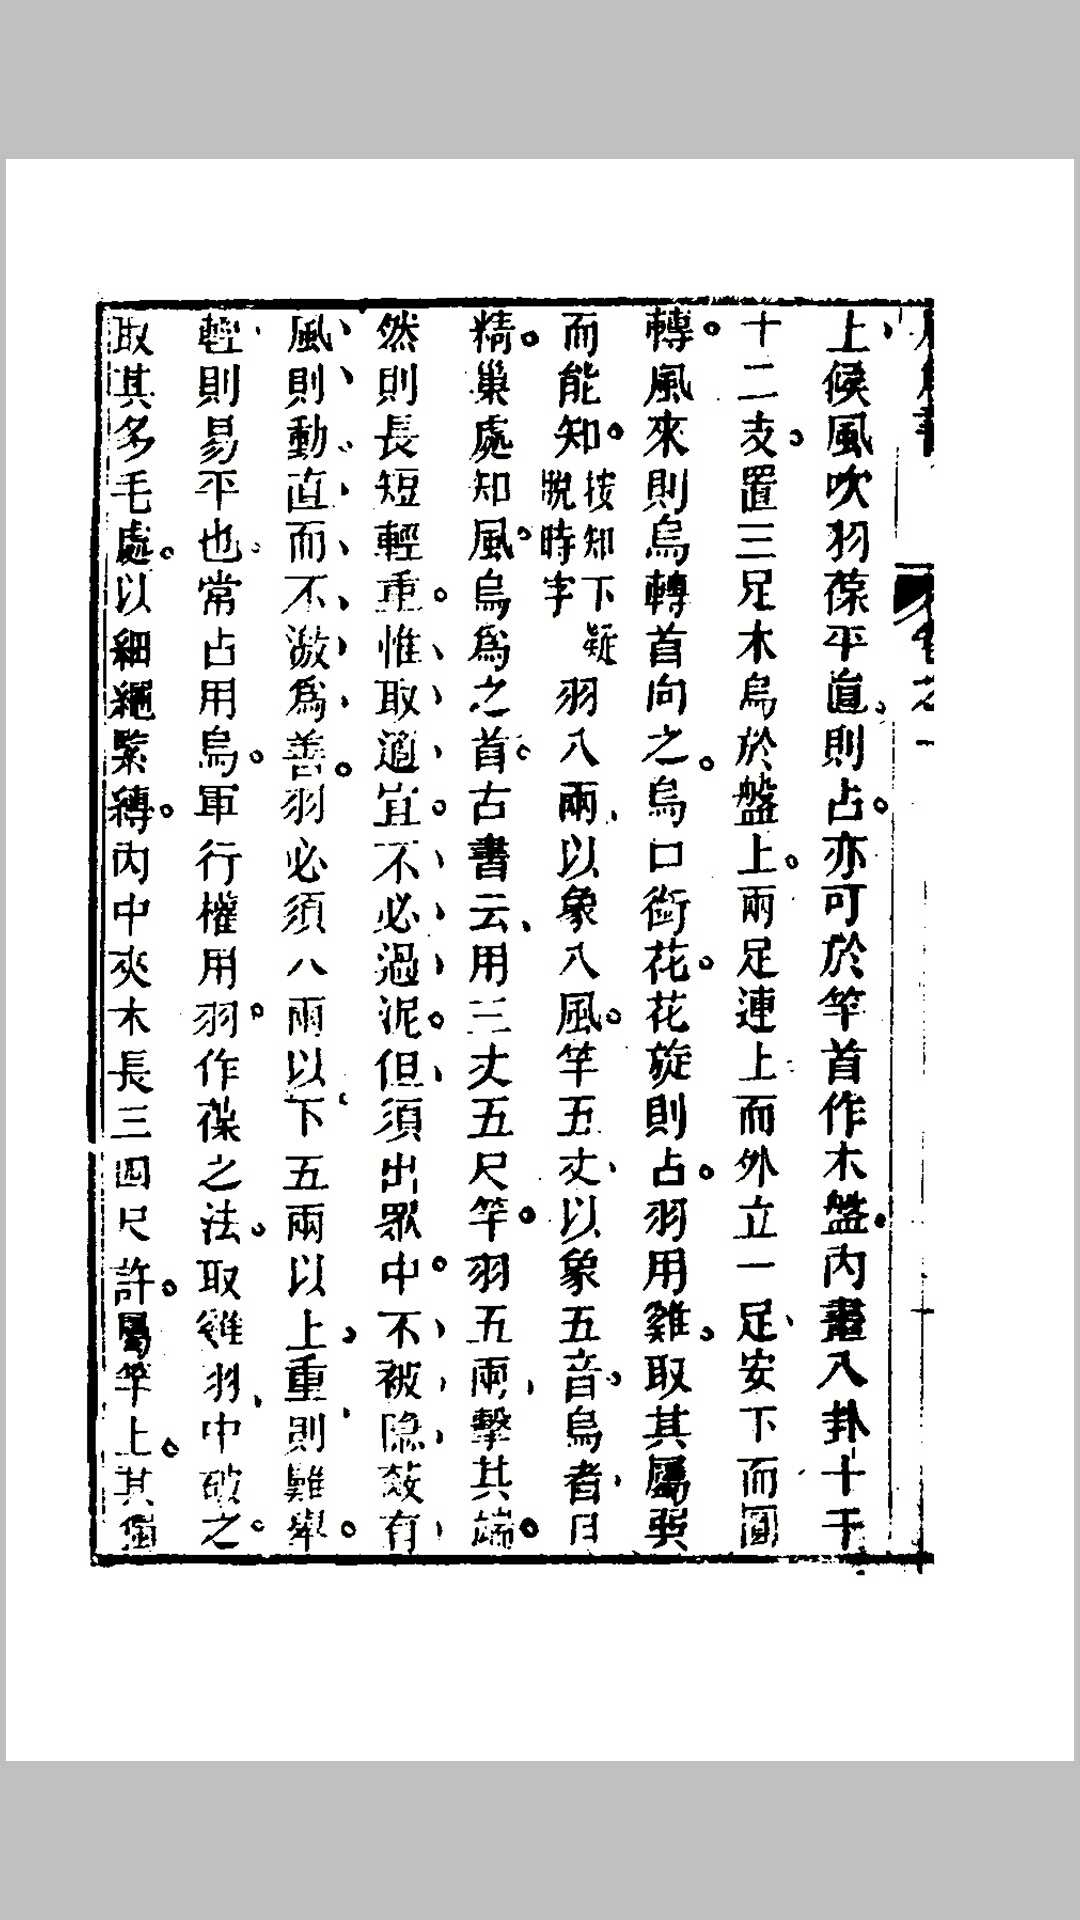 上候風吹羽葆平直則占亦可於竿首作木盤内畫八卦十干
十二支置三足木烏於盤上兩足連上而外立一足安下而圓
轉風來則烏轉首向之烏口銜花花旋則占羽用雞取其屬巽
而能知按知下疑脫時字羽八兩以象八風竿五丈以象五音烏者日
精巢處知風烏爲之首古書云用三丈五尺竿羽五兩擊其端
然則長短輕重惟取適宜不必過泥但須出眾中不被隐蔽有
風則動直而不激爲善羽必須八兩以下五兩以上重則難舉
輕則易平也常占用烏軍行權用羽作葆之法取雞羽中破之
取其多毛處以細繩緊縛内中夾木長三四尺許屬竿上其